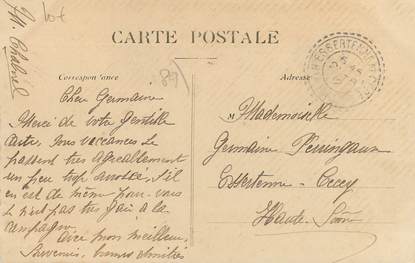 10€
CARTE POSTALE
Correspondance
Adresse
89
M Mademoiselle
Germaine
Essertenne-Cecey
Haute-Saône
Chère Germaine
Merci de votre gentille
carte. Nos vacances se
passent très agréablement
un peu trop s'il
en est de même pour vous
Ce n'est pas très gai à la
campagne
Avec mon meilleur
Souvenir, bonnes amitiés